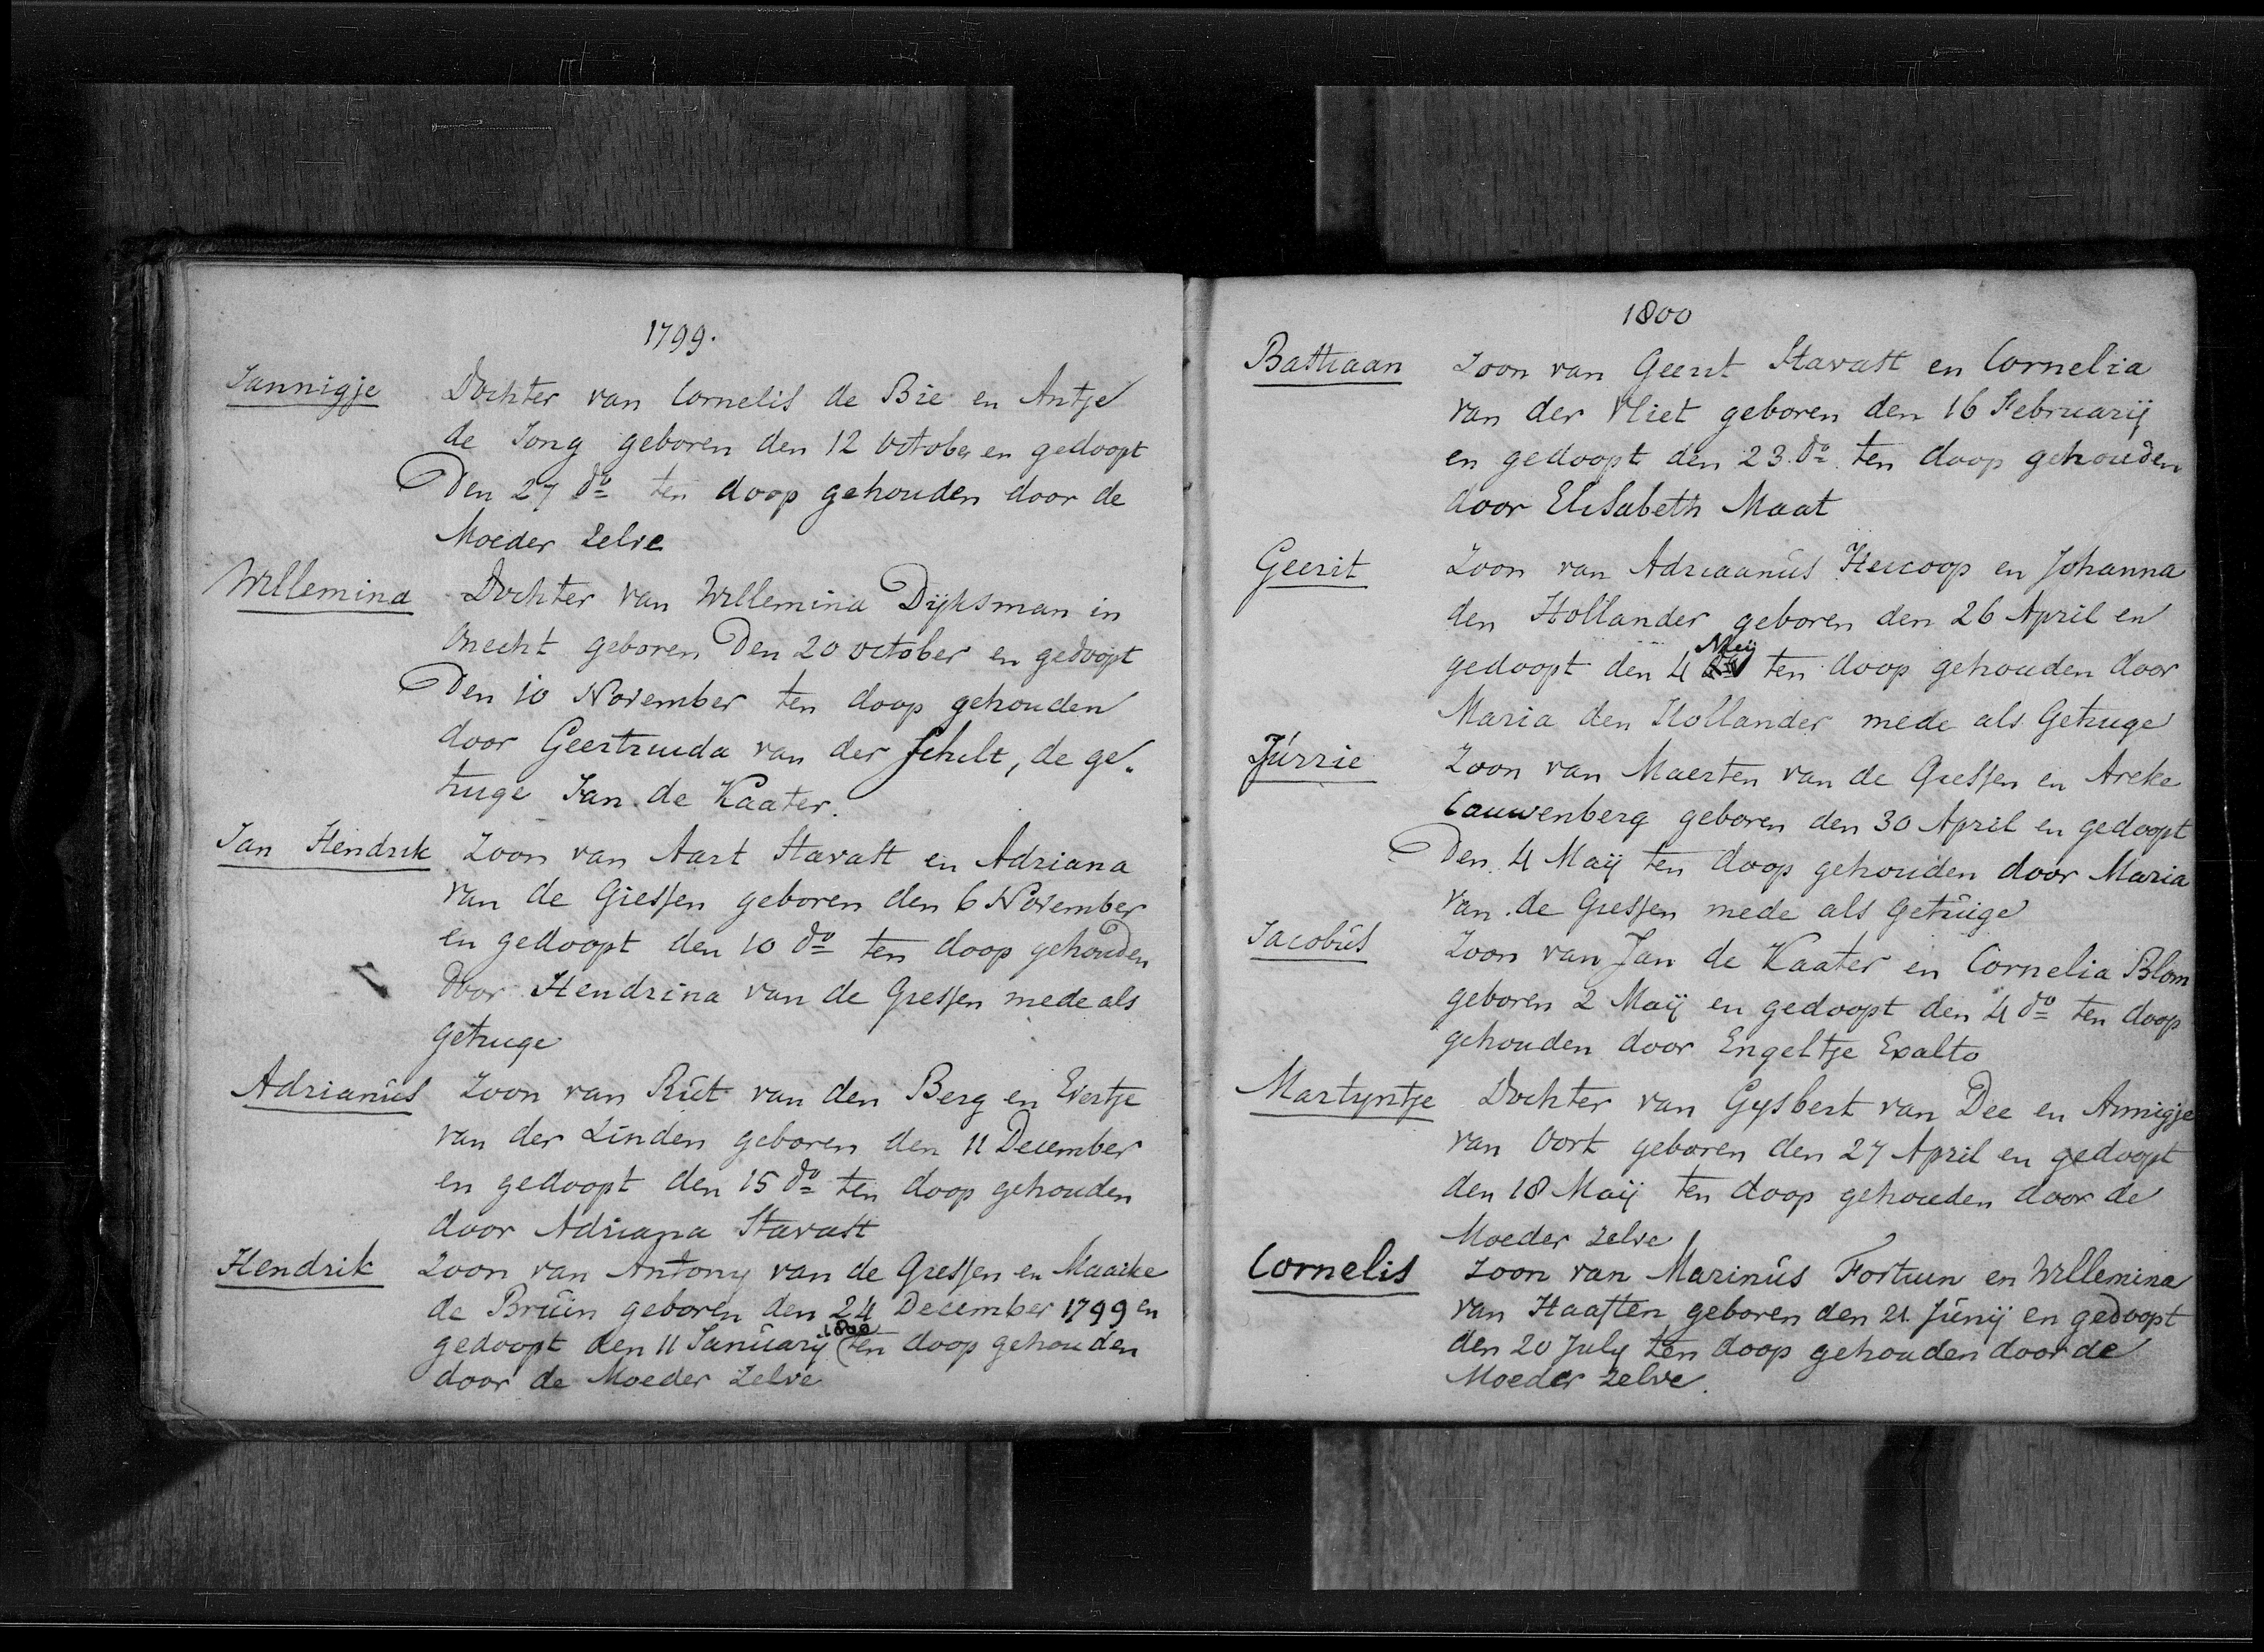 1799.
Jannigje Dochter van Cornelis de Bie en Antje
de Jong geboren den 12 October en gedoopt
Den 27 do ten doop gehouden door de
Moeder zelve
Willemina Dochter van Willemina Dijksman in
onecht geboren Den 20 october en gedoopt
Den 10 November ten doop gehouden
door Geertruida van der Schilt, de ge„
tuige Jan de Kaater.
Jan Hendrik Zoon van Aart Stavast en Adriana
van de Giessen geboren den 6 November
en gedoopt den 10 do ten doop gehouden
door Hendrina van de Giessen mede als
getuige
Adrianus Zoon van Rut van den Berg en Evertje
van der Linden geboren den 11 December
en gedoopt den 15 do ten doop gehouden
door Adriana Stavast
Hendrik Zoon van Antony van de Giessen en Maaike
de Bruin geboren den 24 December 1799 en
gedoopt den 11 Januarij 1800 ten doop gehouden
door de Moeder zelve
1800
Bastiaan Zoon van Geerit Stavast en Cornelia
van der Vliet geboren den 16 Februarij
en gedoopt den 23 do ten doop gehouden
door Elisabeth Maat
Geerit Zoon van Adriaanus Heicoop en Johanna
den Hollander geboren den 26 April en
gedoopt den 4 Meij ten doop gehouden door
Maria den Hollander mede als Getuige
Jurrie Zoon van Maerten van de Giessen en Areke
Cauwenberg geboren den 30 April en gedoopt
Den 4 Maij ten doop gehouden door Maria
van de Giessen mede als Getuige
Jacobus Zoon van Jan de Kaater en Cornelia Blom
geboren 2 Maij en gedoopt den 4 do ten doop
gehouden door Engeltje Exalto
Martyntje Dochter van Gysbert van Dee en Annigje
van Oort geboren den 27 April en gedoopt
den 18 Maij ten doop gehouden door de
Moeder zelve
Cornelis Zoon van Marinus Fortuin en Willemina
van Haaften geboren den 21 Junij en gedoopt
den 20 July ten doop gehouden door de
Moeder zelve.